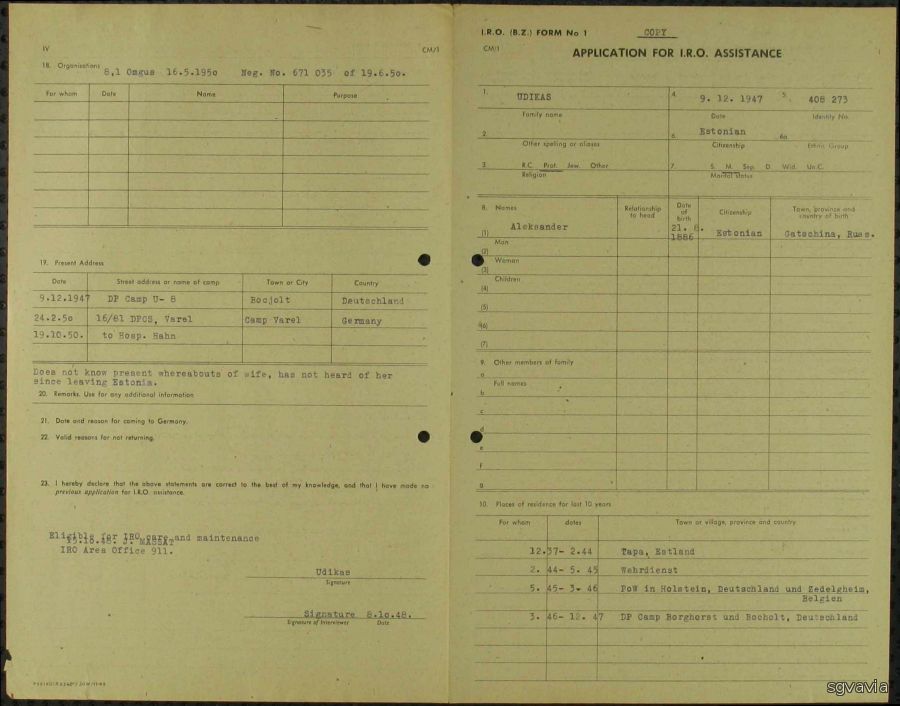 IV
CM/1
18. Organisations
8,1 Omgus 16.5.1950 Neg. No. 671 035 of 19.6.5o.
For whom Date Name Purpose
19. Present Address
Date Street address or name of camp Town or City Country
9.12.1947 DP Camp U- 8 Bocjolt Deutschland
24.2.5o 16/81 DPCS, Varel Camp Varel Germany
19.10.50. to Hosp. Hahn
Does not know present whereabouts of wife, has not heard of her
since leaving Estonia.
20. Remarks. Use for any additional information
21. Date and reason for coming to Germany.
22. Valid reasons for not returning.
23. I hereby declare that the above statements are correct to the best of my knowledge, and that I have made no
previous application for I.R.O. assistance.
Eligible for IRO care and maintenance
J. MASSAT
IRO Area Office 911.
Udikas
Signature
Signature 8.1o.48.
Signature of Interviewer Date
I.R.O. (B.Z.) FORM No 1 COPY
CM/1
APPLICATION FOR I.R.O. ASSISTANCE
1. UDIKAS 4. 9. 12. 1947 5. 408 273
Family name Date Identity No.
2. 6. Estonian 6a.
Other spelling or aliases Citizenship Ethnic Group
3. R.C. Prot. Jew. Other 7. S. M. Sep. D. Wid. Un.C.
Religion Marital status
8. Names Relationship to head Date of birth Citizenship Town, province and country of birth
(1) Aleksander 21. 8. 1886 Estonian Gatschina, Russ.
Man
(2)
Woman
(3)
Children
(4)
(5)
(6)
(7)
9. Other members of family
a
Full names
b
c
d
e
f
g
10. Places of residence for last 10 years
For whom dates Town or village, province and country
12.37- 2.44 Tapa, Estland
2. 44- 5. 45 Wehrdienst
5. 45- 3- 46 PoW in Holstein, Deutschland und Zedelgheim,
Belgien
3. 46- 12. 47 DP Camp Borghorst und Bocholt, Deutschland
sgvavia